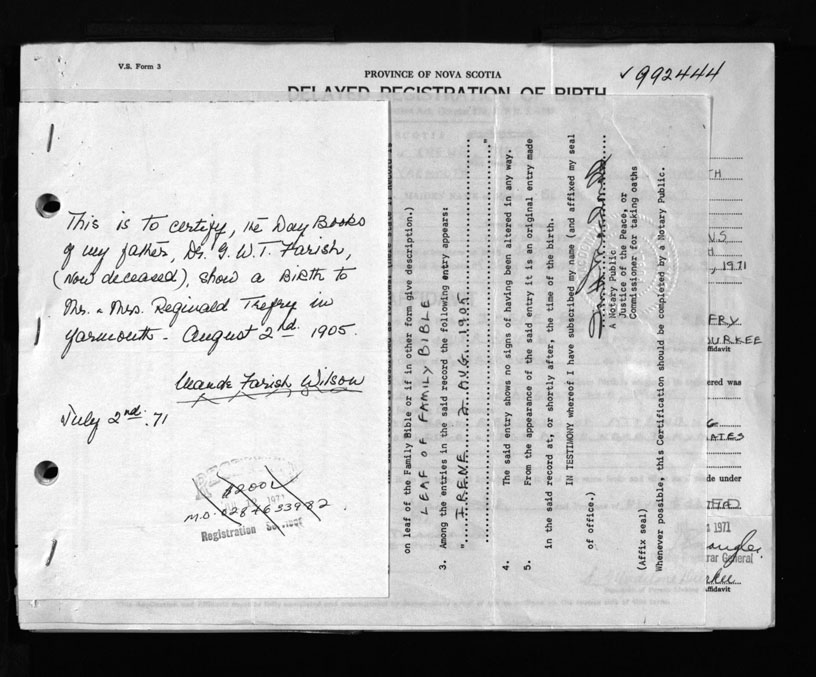 V.S. Form 3
PROVINCE OF NOVA SCOTIA
✓992444
DELAYED REGISTRATION OF BIRTH
This is to certify, the Day Books
of my father, Dr. G. W. T. Farish,
(now deceased), show a Birth to
Mr. & Mrs. Reginald Trefry in
Yarmouth - August 2nd 1905.
Maude Farish Wilson
July 2nd. 71
$2.00
1971
M.O. 0284633982
Registration
on leaf of the Family Bible or if in other form give description.)
LEAF OF FAMILY BIBLE
3. Among the entries in the said record the following entry appears:
"IRENE 2 AUG. 1905"
4. The said entry shows no signs of having been altered in any way.
5. From the appearance of the said entry it is an original entry made
in the said record at, or shortly after, the time of the birth.
IN TESTIMONY whereof I have subscribed my name (and affixed my seal
of office.)
A Notary Public
Justice of the Peace, or
Commissioner for taking oaths
(Affix seal)
Whenever possible, this Certification should be completed by a Notary Public.
TH
N.S
, 1971
FRY
DURKEE
ffidavit
ered was
ATES
de under
1971
rar General
ffidavit